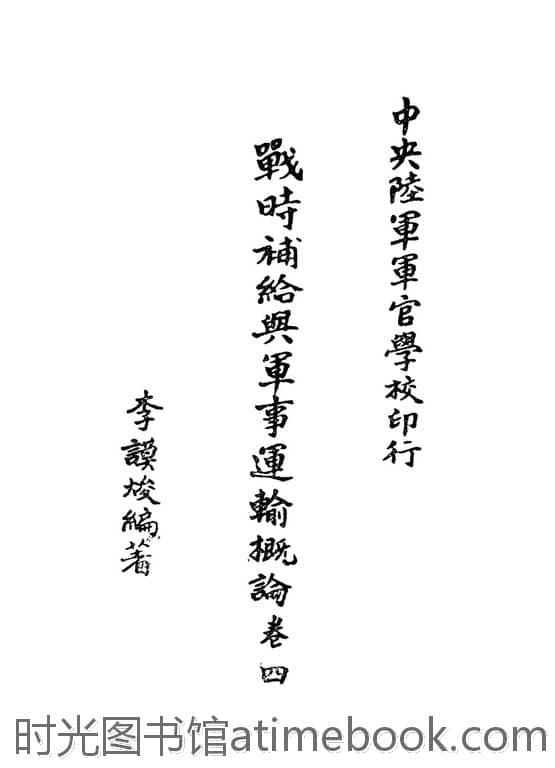 中央陸軍軍官學校印行
戰時補給與軍事運輸概論卷四
李謨焌編著
时光图书馆atimebook.com